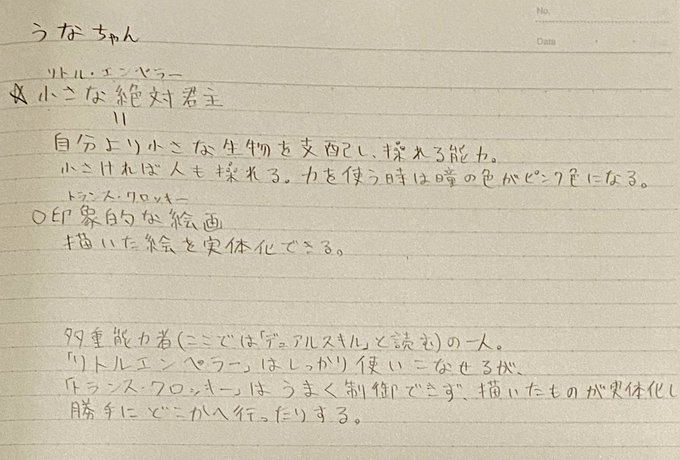 No.
Date
うなちゃん
リトル・エンペラー
☆小さな絶対君主
=
自分より小さな生物を支配し、操れる能力。
小さければ人も操れる。力を使う時は瞳の色がピンク色になる。
トランス・クロッキー
○印象的な絵画
描いた絵を実体化できる。
多重能力者(ここでは「デュアルスキル」と読む)の一人。
「リトルエンペラー」はしっかり使いこなせるが、
「トランス・クロッキー」はうまく制御できず、描いたものが実体化し
勝手にどこかへ行ったりする。